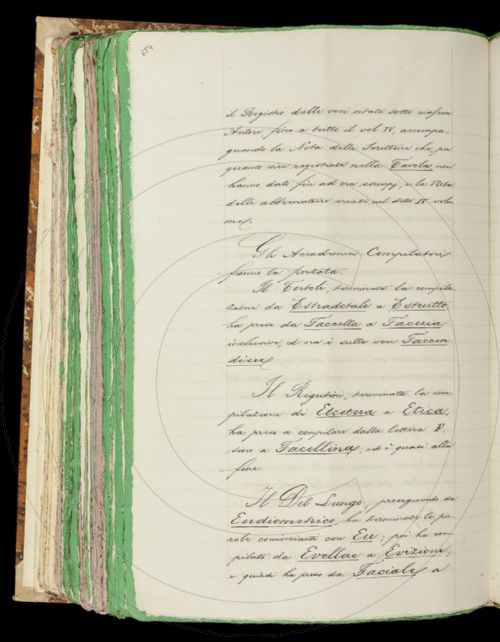 654
il Registro delle voci citate sotto ciascun
Autore, fino a tutto il vol IV, accompa-
gnando la Nota delle Scritture che, pu
quanto sien registrate nella Tavola non
hanno dato fin ad ora esempj, e la Nota
delle abbreviature usate nel detto IV volu
me.
Gli Accademici Compilatori
fanno la portata.
Il Tortoli, terminata la compila
zione da Estradotale a Estrutto,
ha preso da Faccetta a Facezia
inclusive, ed ora è sulla voce Faccen
diere.
Il Rigutini, terminata la com-
pilazione di Etcetera a Etica,
ha preso a compilare dalla lettera F,
sino a Facellina, ed è quasi alla
fine.
Il Del Lungo, proseguendo da
Eudiometrico, ha terminato le pa-
role comincianti con Eu; poi ha com
pilato da Evellere a Evizione,
e quindi ha preso da Faciale a